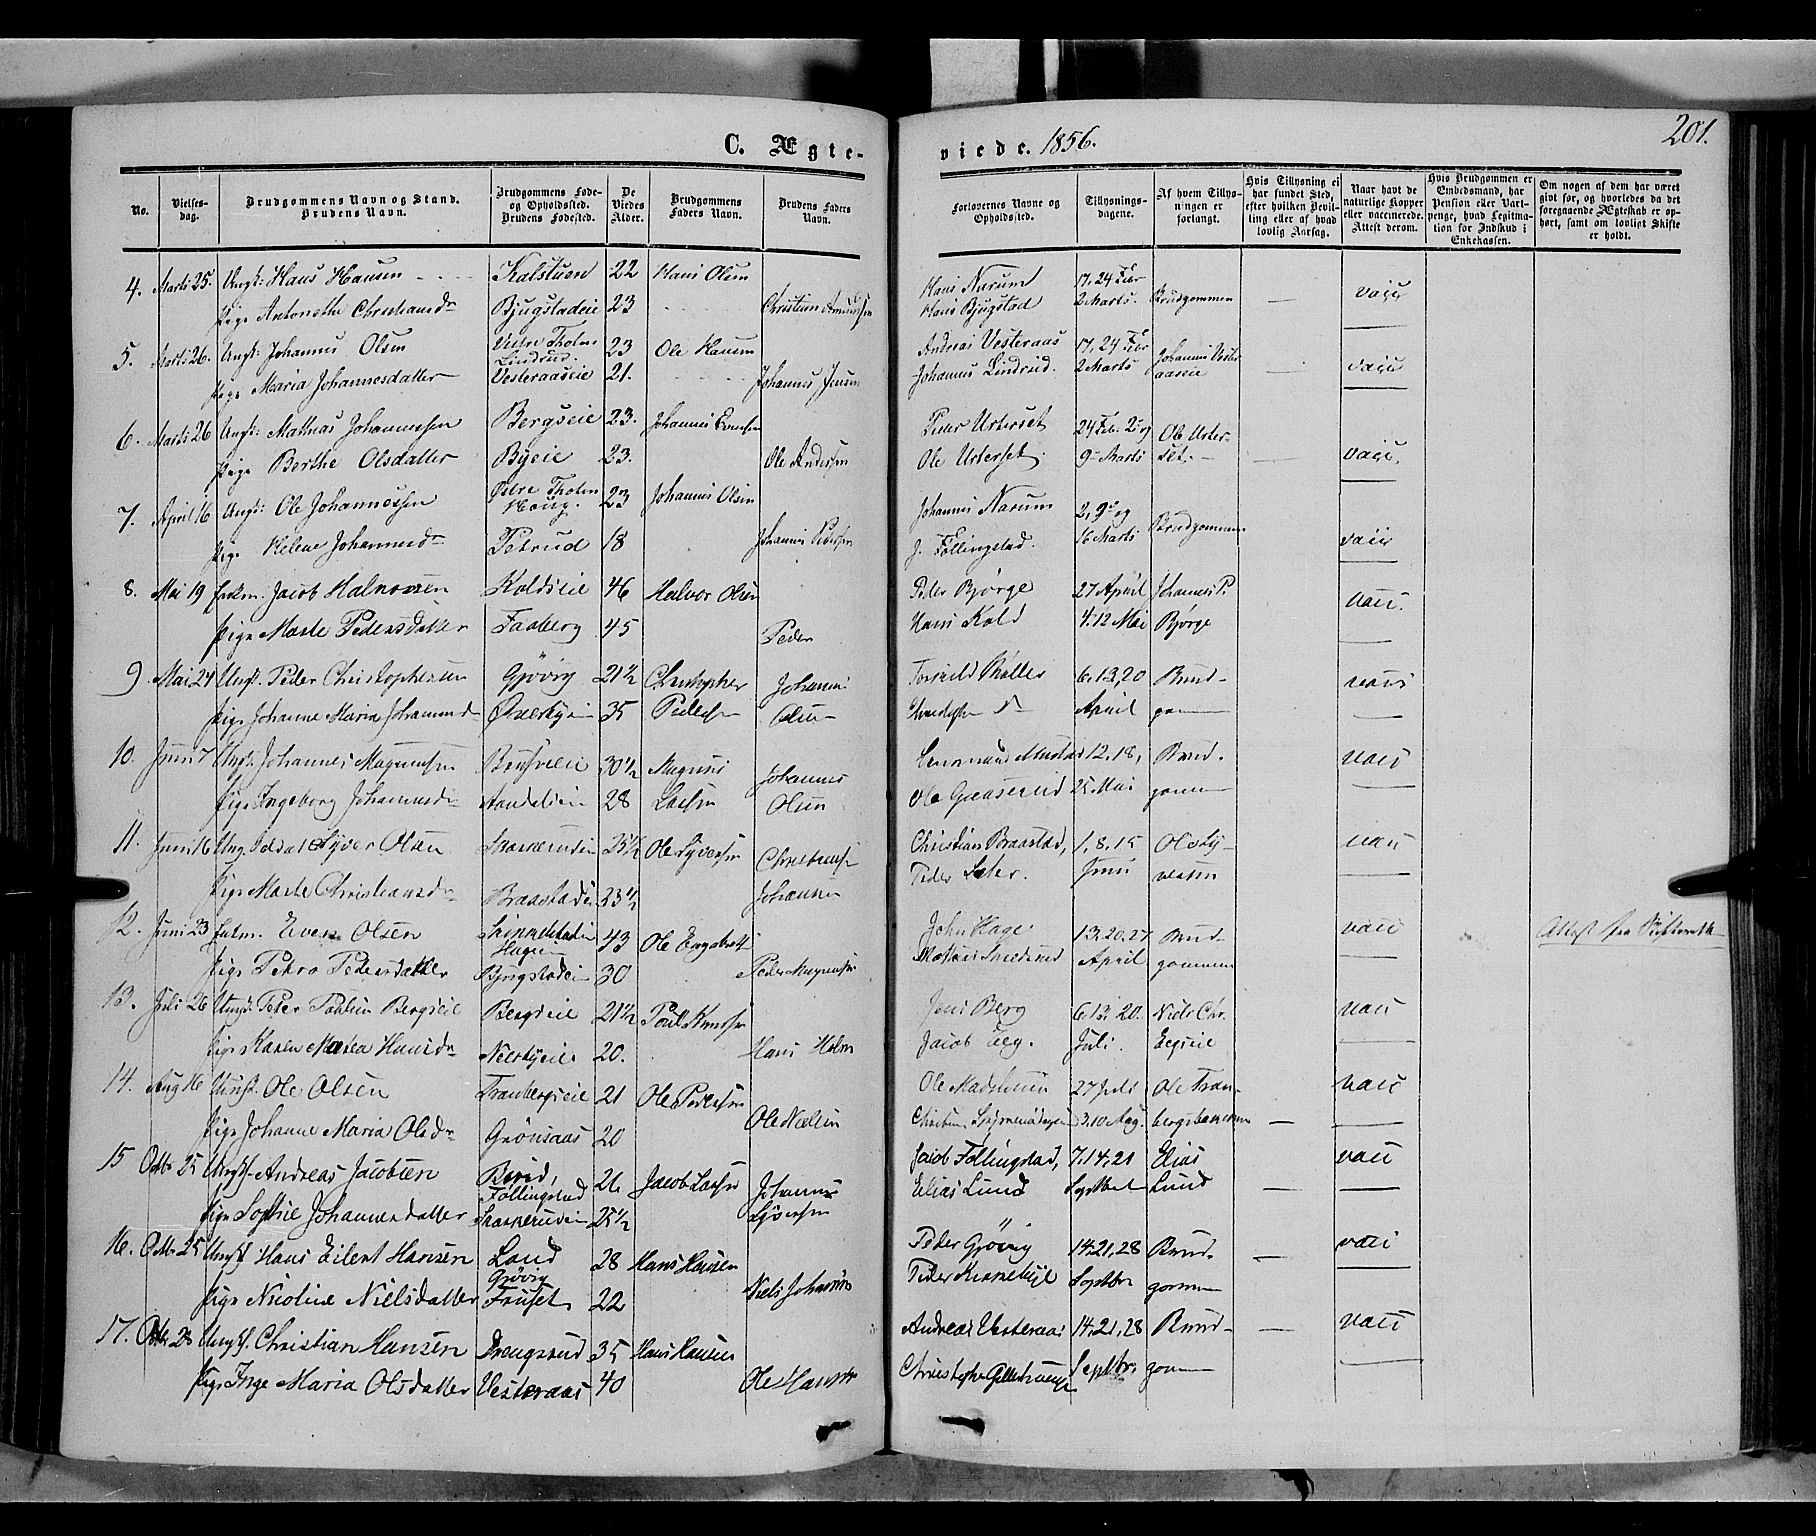 C. Ægte-
viede. 1856.
201.
No.
Vielses-
dag.
Brudgommens Navn og Stand.
Brudens Navn.
Brudgommens Føde-
og Opholdssted.
Brudens Fødested.
De
Viedes
Alder.
Brudgommens
Faders Navn.
Brudens Faders
Navn.
Forlovernes Navne og
Opholdssted.
Tillysnings-
dagene.
Af hvem Tillys-
ningen er
forlangt.
Hvis Tillysning ei
har fundet Sted,
efter hvilken Bevil-
ling eller af hvad
lovlig Aarsag.
Naar havt de
naturlige Kopper
eller vaccinerede.
Attest derom.
Hvis Brudgommen er
Embedsmand, har
Pension eller Vart-
penge, hvad Legitima-
tion for Indskud i
Enkekassen.
Om nogen af dem har været
givt før, og hvorledes da det
foregaaende Ægteskab er op-
hørt, samt om lovligt Skifte
er holdt.
4. Marts 25. Ungk: Hans Hansen Kalstuen 22 Hans Olsen
Hans Narum 17, 24 Febr
Pige Antonethe Christiansdr Bjugstadeie 23 Christian Amundsen
Hans Bjugstad 2 Marts. Brudgommen — vacc
5. Marts 26. Ungk: Johannes Olsen Vestre Tholm Lindrud 23 Ole Hansen
Andreas Vesteraas 17, 24 Febr
Pige Maria Johannesdatter Vesteraaseie 21. Johannes Jensen
Johannes Lindrud. 2 Marts Johannes Vesteraaseie — vacc
6. Marts 26 Ungk: Mathias Johannessen Bergseie 23. Johannes Evensen
Peder Urterset 24 Feb. 2 og
Pige Berthe Olsdatter Byeie 23. Ole Andersen
Ole Urterset. 9 Marts Ole Urterset. — vacc.
7. April 16 Ungk: Ole Johannessen Østre Tholm Haug. 23 Johannes Olsen
Johannes Narum 2, 9 og
Pige Helene Johannesdr Petrud 18 Johannes Pedersen
J. Føllingstad. 16 Marts Brudgommen vacc
8. Mai 19 Enkm. Jacob Halvorsen Koldseie 46 Halvor Olsen
Peder Bjørge 27 April Johannes P.
Pige Marte Pedersdatter Faaberg 45 Peder
Hans Kold 4. 12 Mai Bjørge vacc.
9. Mai 24 Ungk. Peder Christophersen Gjøvig 21 1/2 Christopher Johannes
6. 13, 20 Brud- vacc
Pige Johanne Maria Johannesd 35 Pedersen Olsen
April gommen
10. Juni 7 Ungk. Johannes Magnussen 30 1/2 Magnus Johannes
12, 18, Brud- vacc
Pige Ingeborg Johannesdr 28 Larsen Olsen
Ole 25 Mai gommen
11. Juni 16 Ung. Syver Olsen Skarkerudeie 25 1/2 Ole Syversen Christian
Christian Braastad, 1, 8, 15 Ole Sy- vacc
Pige Marte Christiansdr Braastadeie 23 1/2 Johansen
Peder Juni versen
12. Juni 23 Enkm. Even Olsen Hageeie 43 Ole Engebrets
John Hage 13. 20. 27 Brud- vacc
Pige Petra Pedersdatter Bjugstadeie 30 Peder Magnussen
Mathias Smedsrud April gommen
Attest fra Skifteret
13. Juli 26 Ungk Peder Paulsen Bergseie Bergseie 21 1/2 Poul Knudsen
Jens Berg 6. 13. 20. Niels Chr. vacc
Pige Karen Mathea Hansdr 20. Hans Holm
Jacob Eeg. Juli. Eegseie
14. Aug 16 Ungk. Ole Olsen Tranbergseie 21 Ole Pedersen
Ole 27 Juli Ole Tran- vacc
Pige Johanne Maria Olsdr Grønsaas 20 Ole Nielsen
3. 10 Aug. bergsbakken —
15 Octbr 25 Ungk. Andreas Jacobsen Biríd, Føllingstad 26 Jacob Larsen Johannes
Jacob Føllingstad, 7. 14, 21 Elias vacc
Pige Sophie Johannesdatter Skarkerudeie 25 1/2 Syversen
Elias Lund Septbr Lund —
16. Octbr 25 Ungk Hans Eilert Hansen Land Gjøvig 28 Hans Hansen
Peder Gjøvig 14. 21, 28 Brud- vacc
Pige Nicoline Nielsdatter Fruset 22 Niels Johannes
Peder Septbr gommen —
17. Octbr 28 Ungk. Christian Hansen Drengsrud 35 Hans Hansen
Andreas Vesteraas 14. 21, 28 Brud- vacc
Pige Inge Maria Olsdatter Vesteraas 40 Ole Hansen
Septbr. gommen —